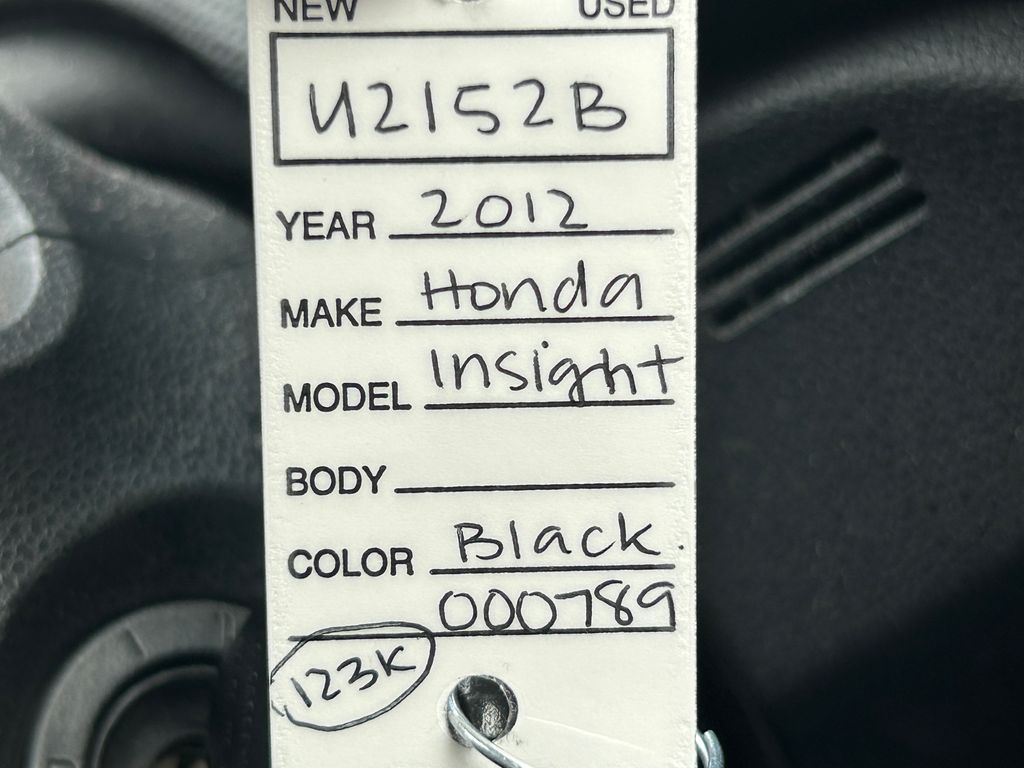 NEW USED
U2152B
YEAR 2012
MAKE Honda
MODEL Insight
BODY
COLOR Black.
000789
123K